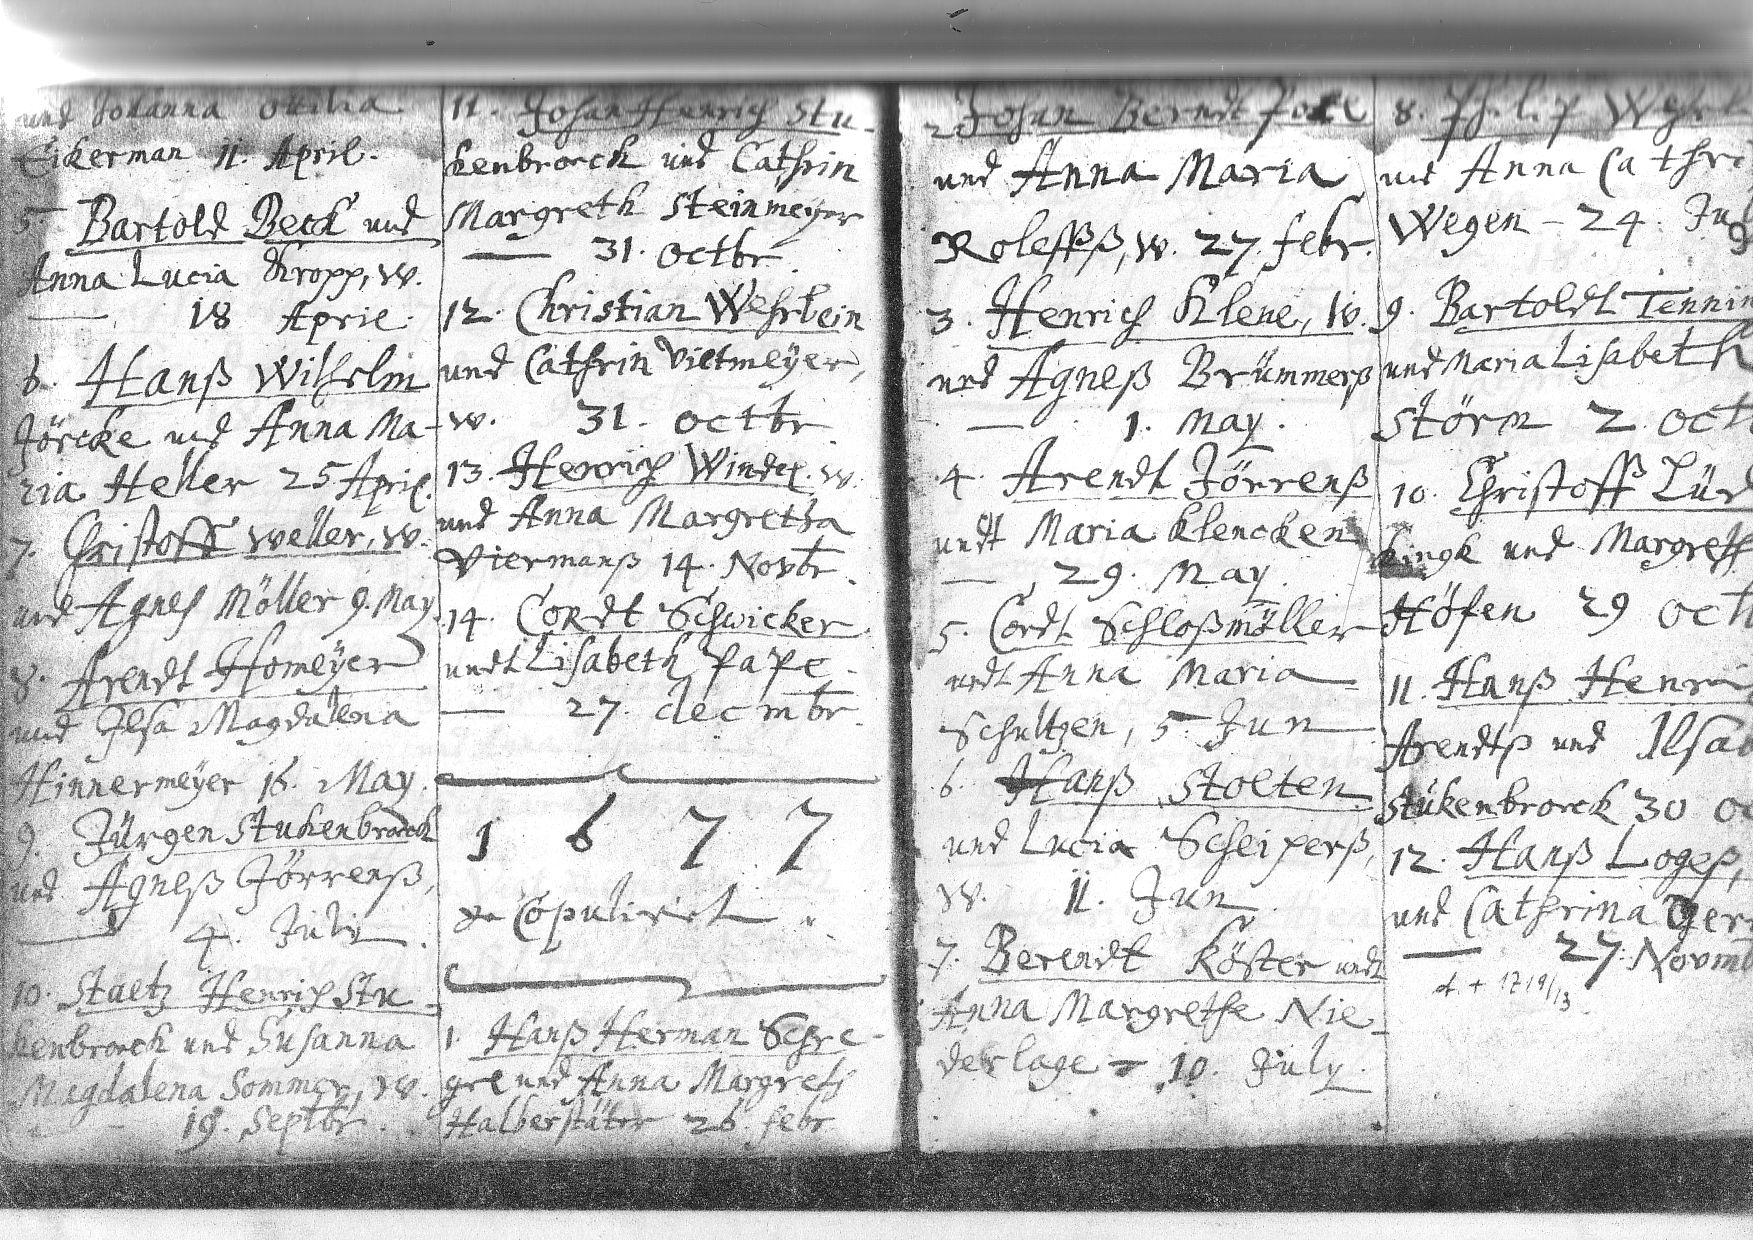 und Johanna Ottilia
Eikerman 11. April.
5. Bartold Beck und
Anna Lucia Kropp, w.
— 18 April.
6. Hanß Wilhelm
Jörcke und Anna Ma-
ria Heller 25 April.
7. Christoff Weller, w.
und Agnes Möller 9. May.
8. Arendt Homeyer
und Ilsa Magdalena
Hinnermeyer 16. May.
9. Jürgen Stukenbroeck
und Agneß Jörrenß,
— 4. July.
10. Staetz Henrich Stu-
kenbroeck und Susanna
Magdalena Sommer, w.
— 19. Septbr.
11. Johan Henrich Stu-
kenbroeck und Cathrin
Margreth Steinmeyer
— 31. Octbr.
12. Christian Wehrbein
und Cathrin Vietmeÿer,
w. 31. Octbr.
13. Henrich Windel. w.
und Anna Margretha
Viermanß 14. Novbr.
14. Cordt Schwicker
undt Lisabeth Pape.
— 27. decmbr.
1677
Copuliret
1. Hanß Herman Schre-
gel und Anna Margreth
Halberstäter 26. febr
2. Johan Berndt
und Anna Maria
Roleffß, w. 27. febr.
3. Henrich Klene, W.
und Agneß Brümmerß
— 1. May.
4. Arendt Jörrenß
undt Maria Klencken
— 29. May.
5. Cordt Schloßmöller
undt Anna Maria
Schultzen, 5. Jun
6. Hanß Stolten
und Lucia Scheiperß,
w. 11. Jun
7. Berendt Köster undt
Anna Margrethe Nie-
derlage = 10. July.
8. Philip
und Anna Cathri
Wegen – 24. Jul
9. Bartoldt Tennin
und Maria Lisabeth
Störm 2. Oct
10. Christoff Lüd
kingk und Margreth
Höfen 29 Oct
11. Hanß Henri
Arendtß und Ilsa
Stükenbroeck 30 Oc
12. Hanß Logeß,
und Cathrina
— 27. Novmb